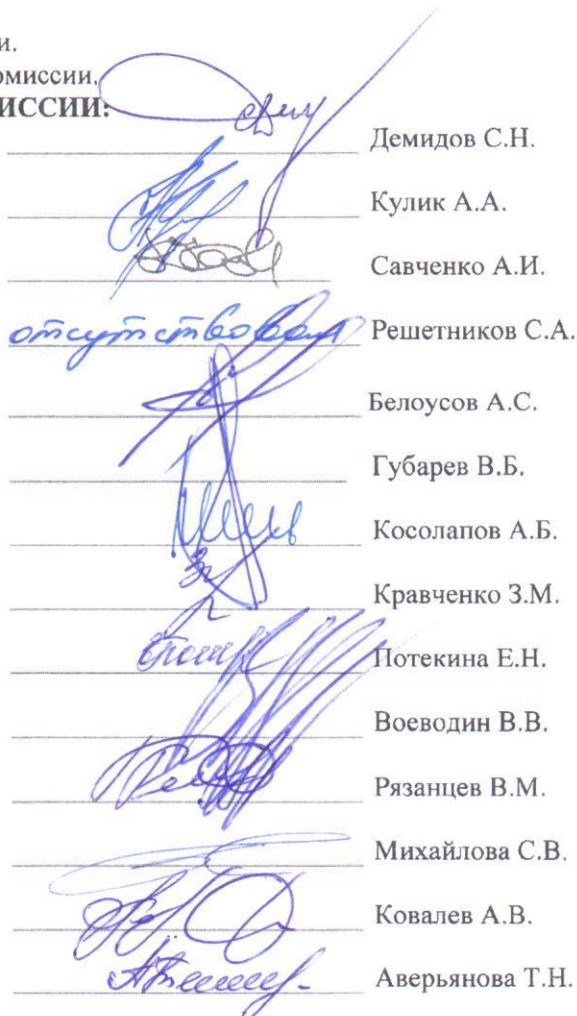 и.
омиссии.
ИССИИ:
Демидов С.Н.
Кулик А.А.
Савченко А.И.
отсутствовал Решетников С.А.
Белоусов А.С.
Губарев В.Б.
Косолапов А.Б.
Кравченко З.М.
Потекина Е.Н.
Воеводин В.В.
Рязанцев В.М.
Михайлова С.В.
Ковалев А.В.
Аверьянова Т.Н.